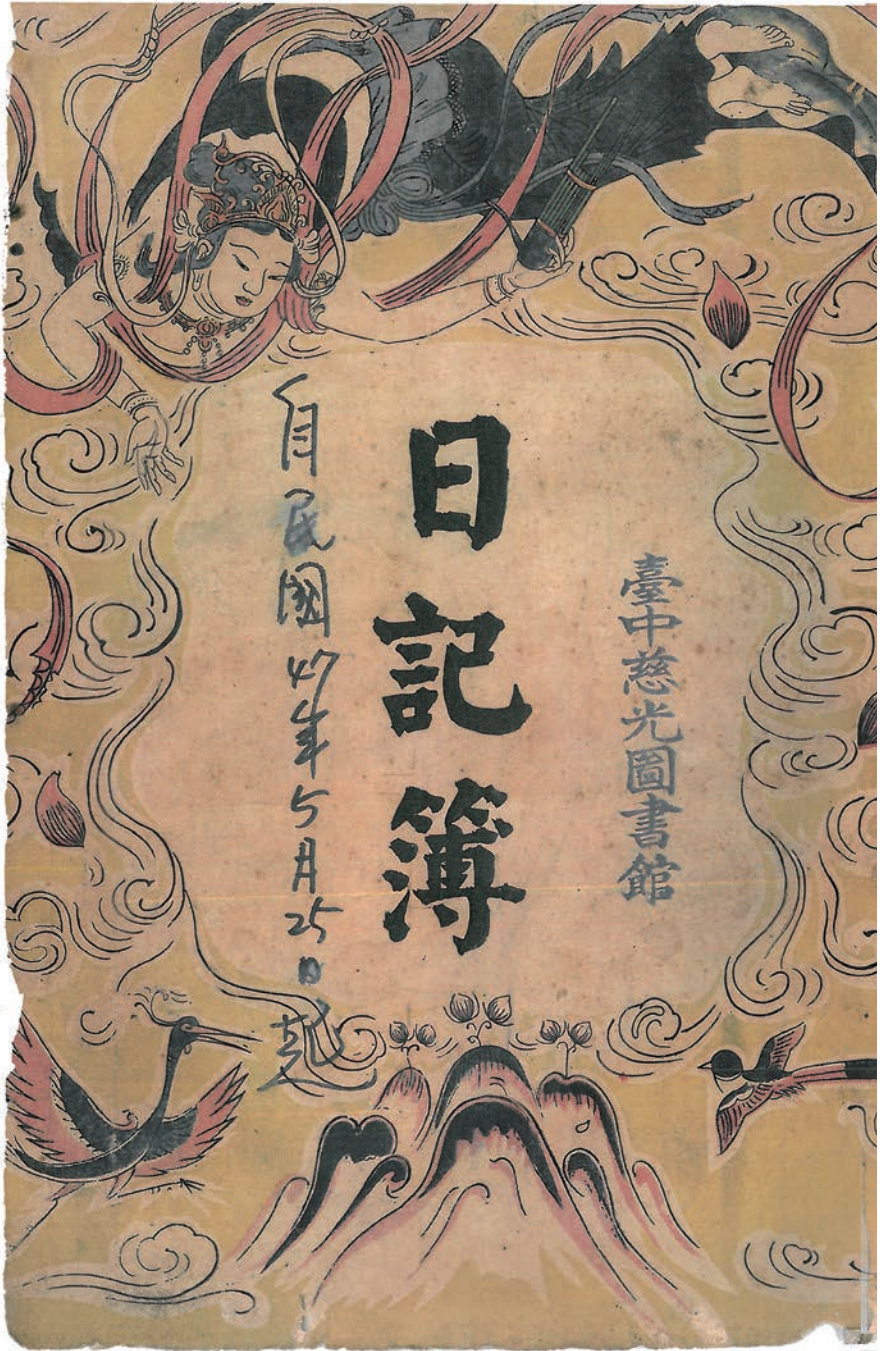 臺中慈光圖書館
日記簿
自民國47年5月25日起